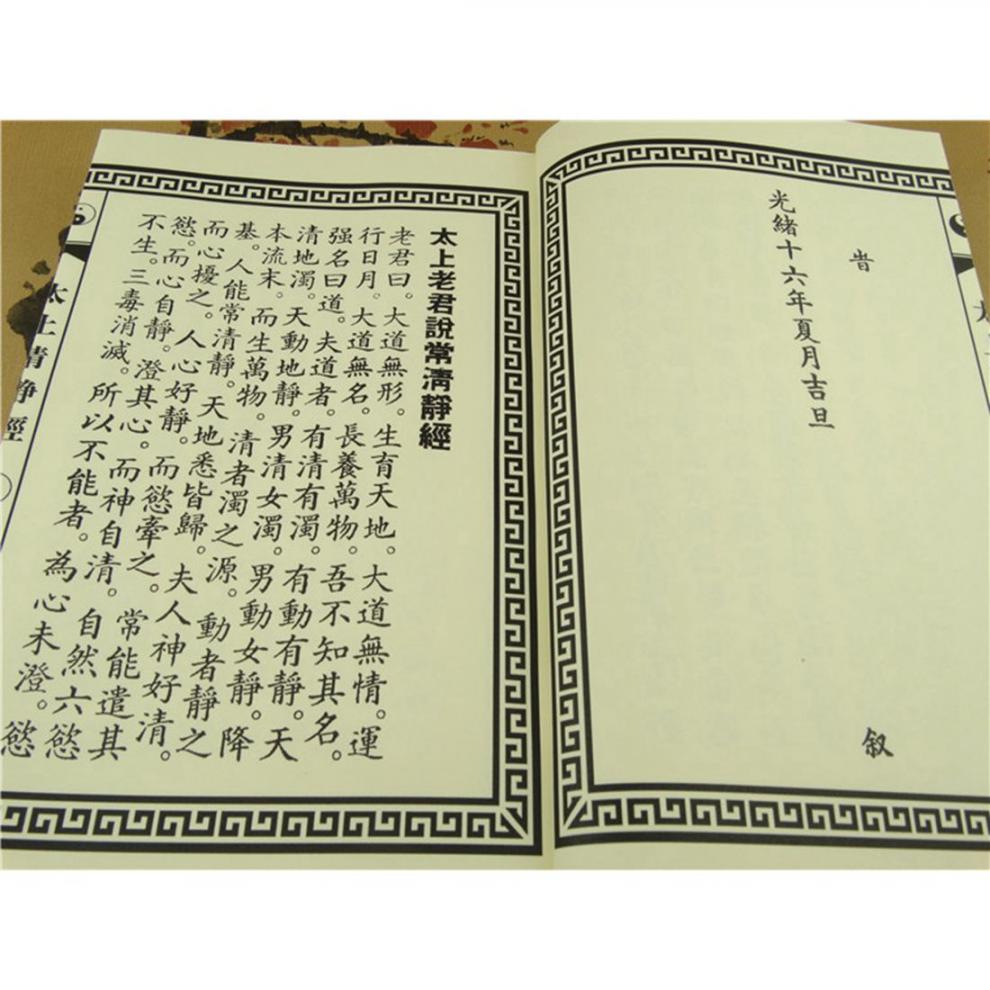 旹 叙
光緒十六年夏月吉旦
太上老君說常清靜經
老君曰。大道無形。生育天地。大道無情。運
行日月。大道無名。長養萬物。吾不知其名。
强名曰道。夫道者。有清有濁。有動有靜。天
清地濁。天動地靜。男清女濁。男動女靜。降
本流末。而生萬物。清者濁之源。動者靜之
基。人能常清靜。天地悉皆歸。夫人神好清。
而心擾之。人心好靜。而慾牽之。常能遣其
慾。而心自靜。澄其心。而神自清。自然六慾
不生。三毒消滅。所以不能者。為心未澄。慾
太上清靜經